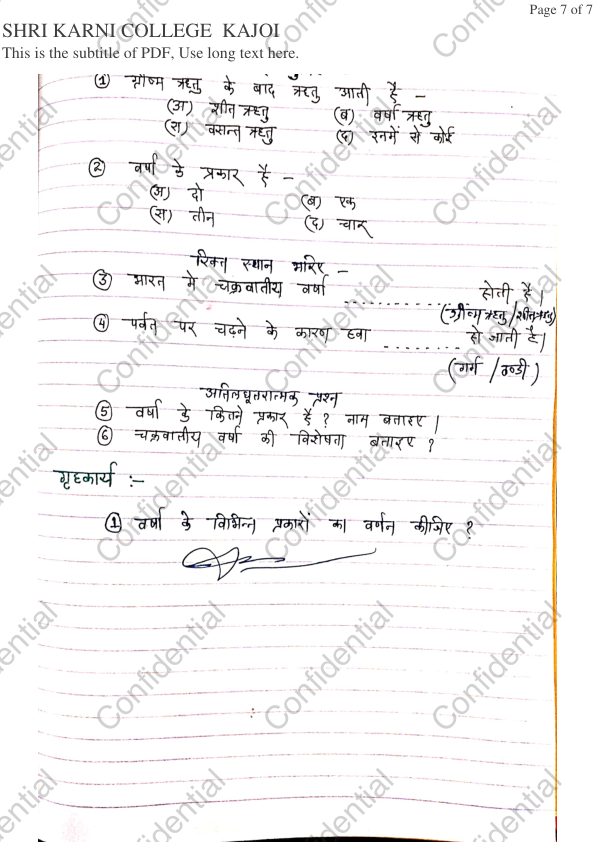 Page 7 of 7
SHRI KARNI COLLEGE KAJOI
This is the subtitle of PDF, Use long text here.
① ग्रीष्म ऋतु के बाद ऋतु आती है –
(अ) शीत ऋतु (ब) वर्षा ऋतु
(स) वसन्त ऋतु (द) इनमें से कोई
② वर्षा के प्रकार है –
(अ) दो (ब) एक
(स) तीन (द) चार
रिक्त स्थान भरिए –
③ भारत मे चक्रवातीय वर्षा ............ होती है।
(ग्रीष्म ऋतु / शीतऋतु)
④ पर्वत पर चढ़ने के कारण हवा ........ हो जाती है।
(गर्म / ठण्डी)
अतिलघूतरात्मक प्रश्न
⑤ वर्षा के कितने प्रकार है ? नाम बताइए।
⑥ चक्रवातीय वर्षा की विशेषता बताइए ?
गृहकार्य :–
① वर्षा के विभिन्न प्रकारों का वर्णन कीजिए ?
Confidential